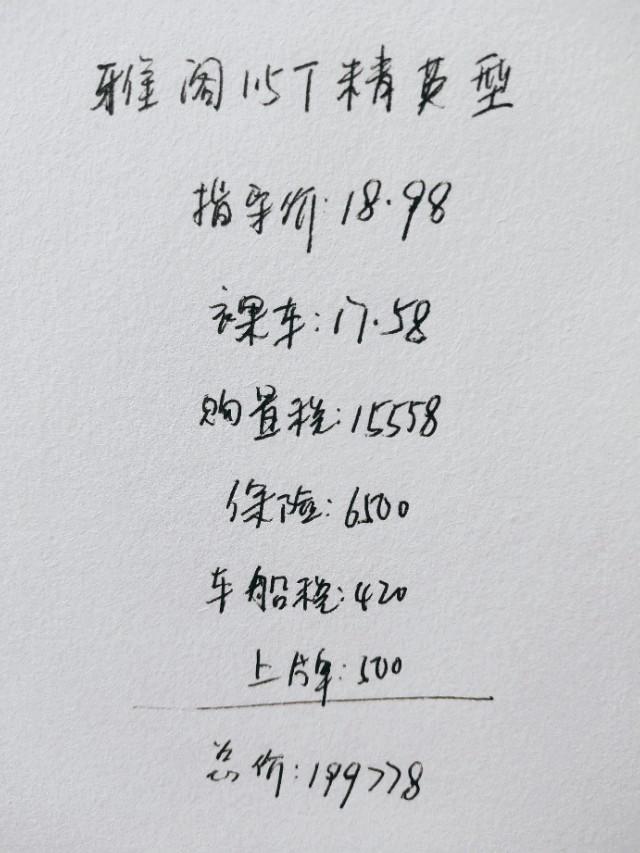 雅阁1.5T精英型
指导价:18.98
裸车:17.58
购置税:15558
保险:6500
车船税:420
上牌:500
总价:199778